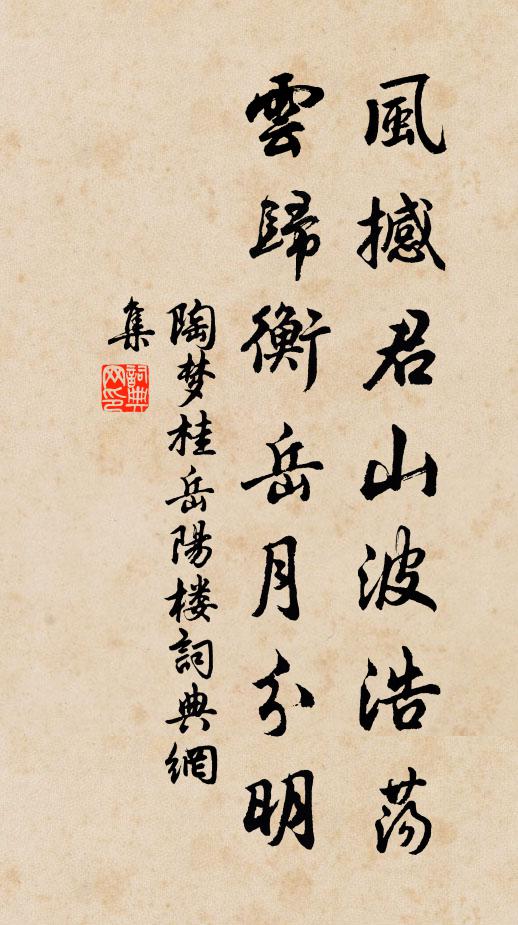 風撼君山波浩蕩
雲歸衡岳月分明
陶梦桂岳陽楼詞典網
集
詞典
网印